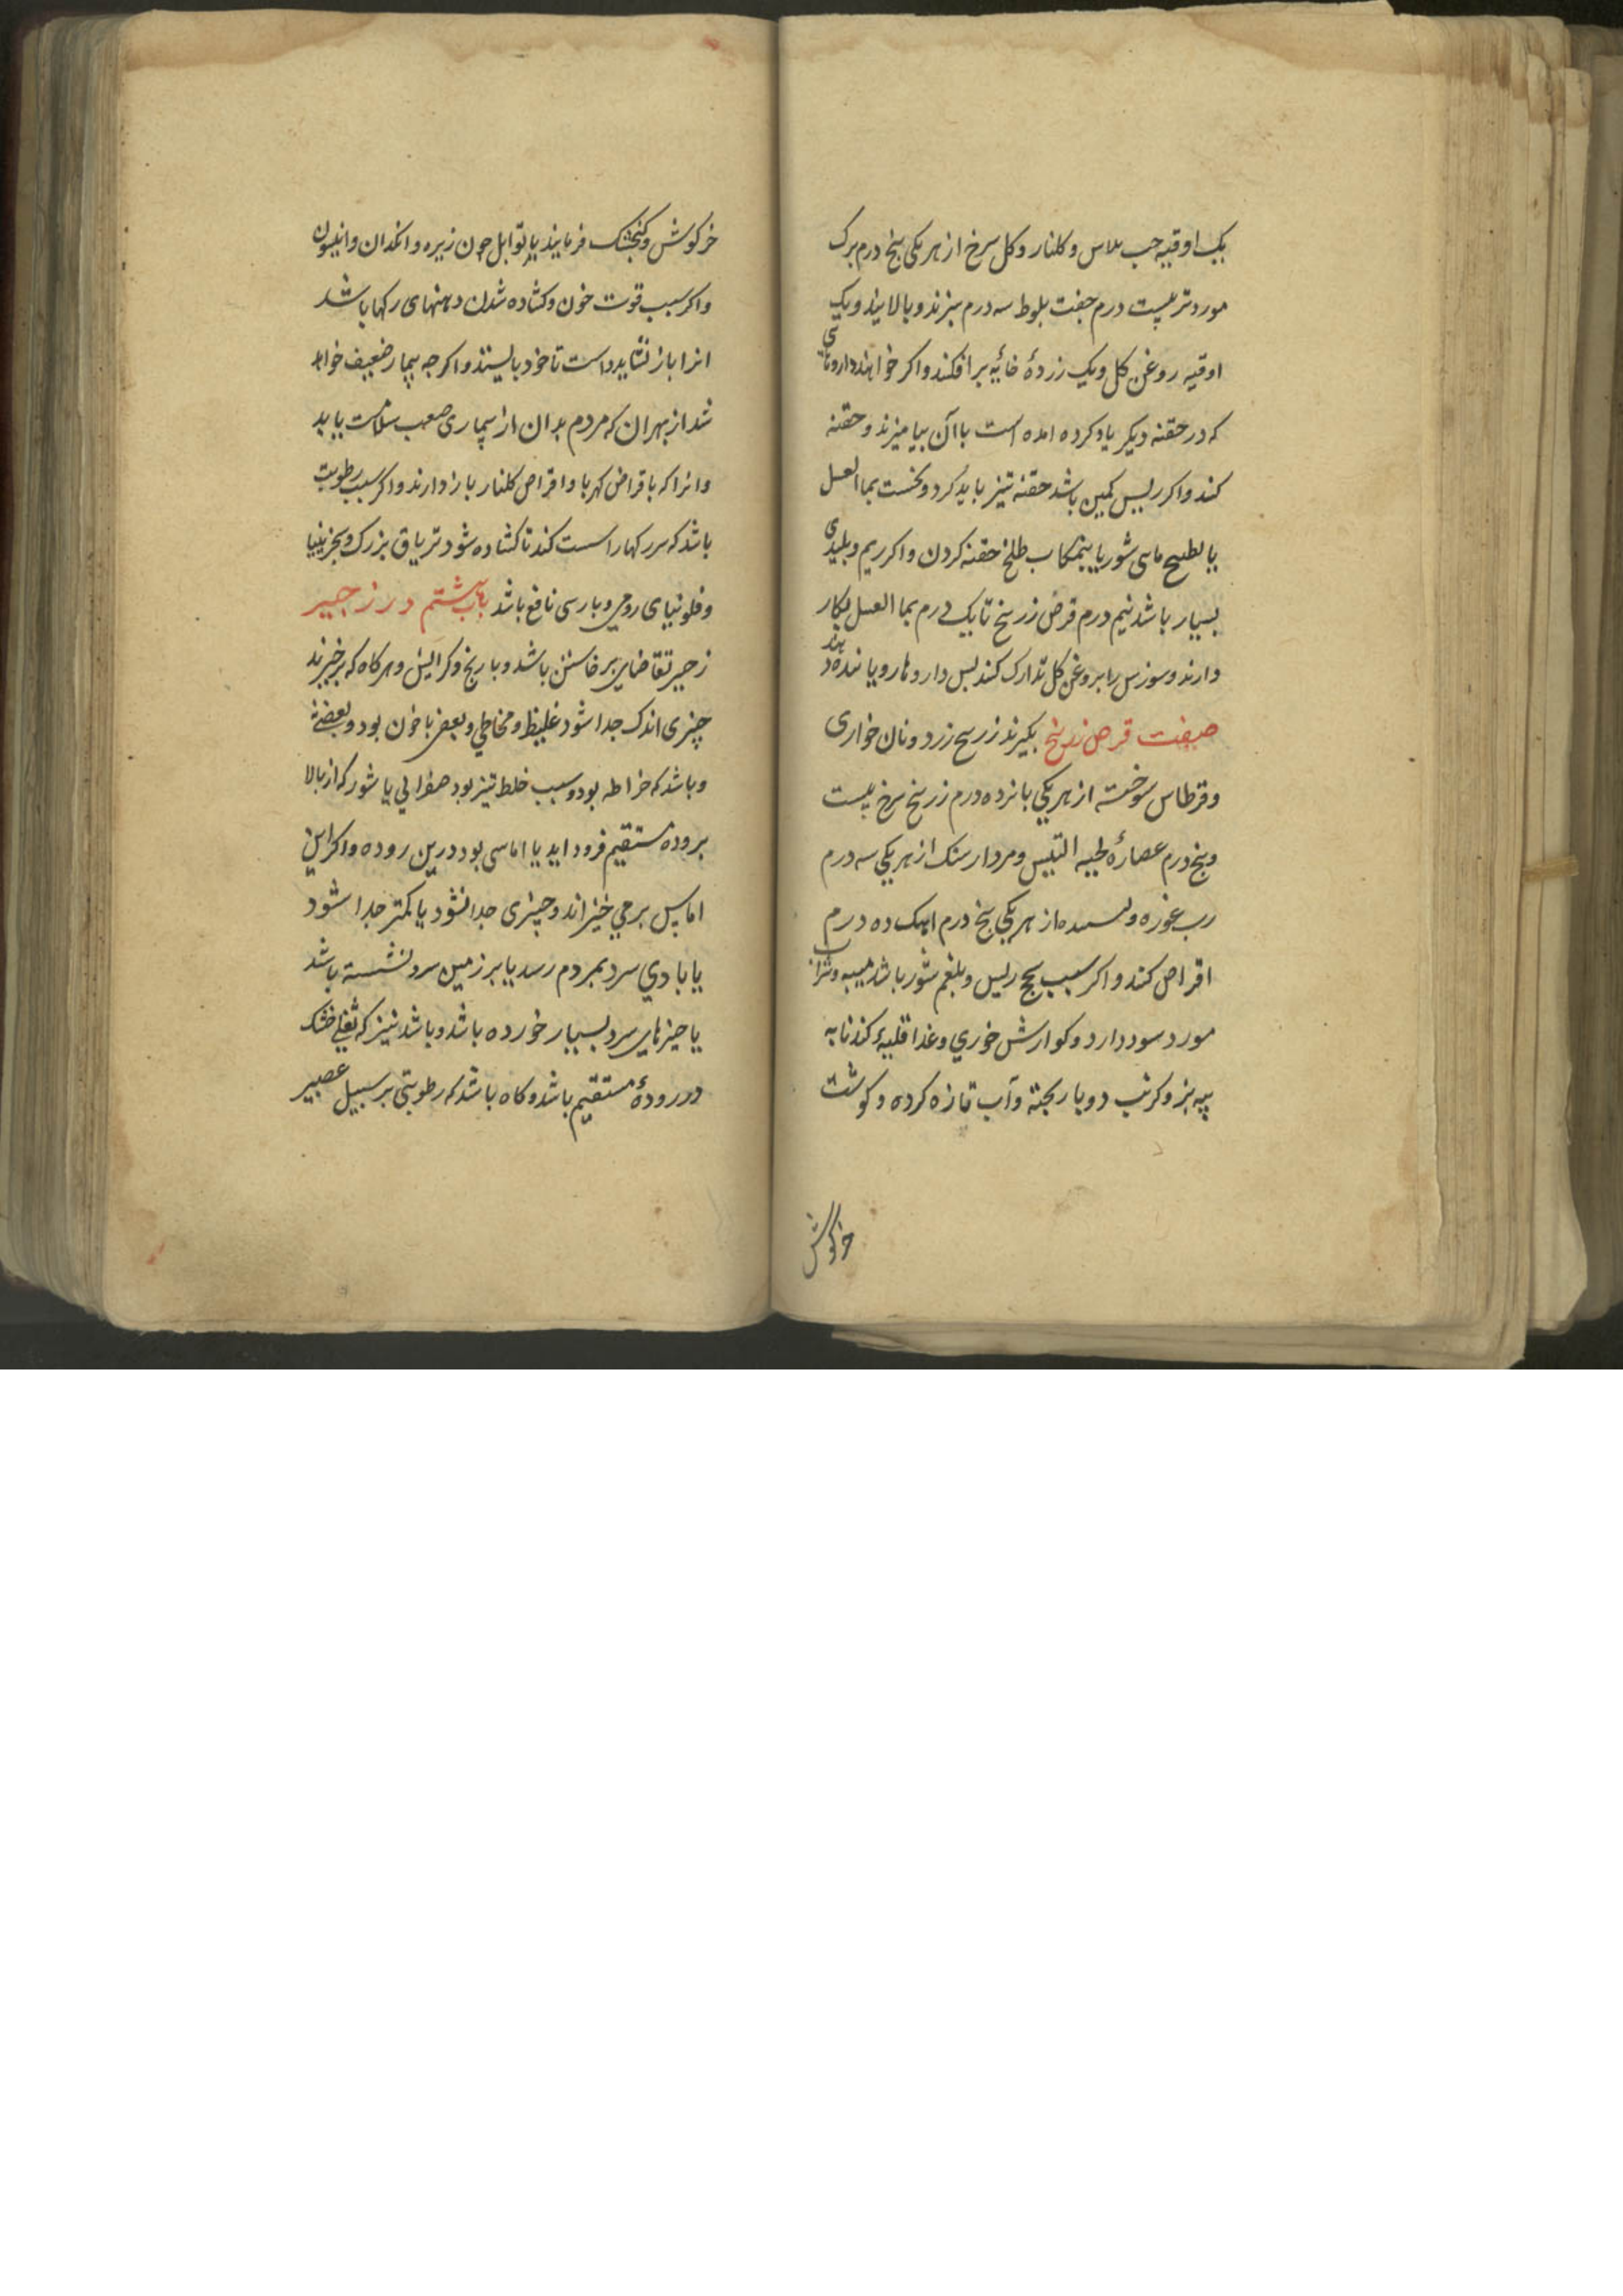 یک اوقیه حب بلاس و کلنار و کل سرخ از هر یکی پنج درم برک
مورد تر بیست درم جفت بلوط سه درم بپزند و بپالایند و یک
اوقیه روغن کل و یک زردهٔ خایه برافکنند و اکر خواهند داروهای
که در حقنه دیکر یاد کرده امده است با آن بیامیزند و حقنه
کنند و اکر ریش کهن باشد حقنه تیز باید کرد و نخست بما العسل
یا بطبیخ ماهی شور یا بنمکاب طلخ حقنه کردن و اکر ریم و پلیدی
بسیار باشد نیم درم قرص زرنیخ تا یک درم بما العسل بکار
دارند و سوزش را بروغن کل تدارک کنند بس داروها رویاننده دهند
صفت قرص زرنیخ بکیرند زرنیخ زرد و نان خواری
و قرطاس سوخته از هر یکی بانزده درم زرنیخ سرخ بیست
و پنج درم عصارهٔ لحیه التیس و مردار سنک از هر یکی سه درم
رب غوره و از هر یکی پنج درم اهک ده درم
اقراص کنند و اکر سبب سحج ریش و بلغم شور باشد میبه و شراب
مورد سود دارد و کوارش خوزی و غذا قلیهٔ کندنا به
پیه بز و کرنب دو بار بخته و آب تازه کرده و کوشت
خرکوش
خرکوش و کنجشک فرمایند با توابل چون زیره و انکدان و انیسون
و اکر سبب قوت خون و کشاده شدن دهنهای رکها باشد
انرا باز نشاید داشت تا خود بایستد و اکر چه بیمار ضعیف خواهد
شد از بهر آن که مردم بدان از بیماری صعب سلامت یابد
و انرا که باقراص کهربا و اقراص کلنار باز دارند و اکر سبب رطوبت
باشد که سر رکها را سست کند تا کشاده شود تریاق بزرک و سجزینیا
و فلونیای رومی و بارسی نافع باشد باب هشتم در زحیر
زحیر تقاضای برخاستن باشد و با رنج و کرایش و هر کاه که برخیزند
چیزی اندک جدا شود غلیظ و مخاطی و بعضی با خون بود و بعضی نه
و باشد که خراطه بود و سبب خلط تیز بود صفرایی یا شور که از بالا
برودهٔ مستقیم فرود اید یا اماسی بود درین روده و اکر این
اماس بر می خیزاند و چیزی جدا نشود یا کمتر جدا شود
یا بادی سرد بمردم رسد یا بر زمین سرد نشسته باشد
یا چیزهای سرد بسیار خورده باشد و باشد نیز که ثفلی خشک
در رودهٔ مستقیم باشد و کاه باشد که رطوبتی بر سبیل عصیر